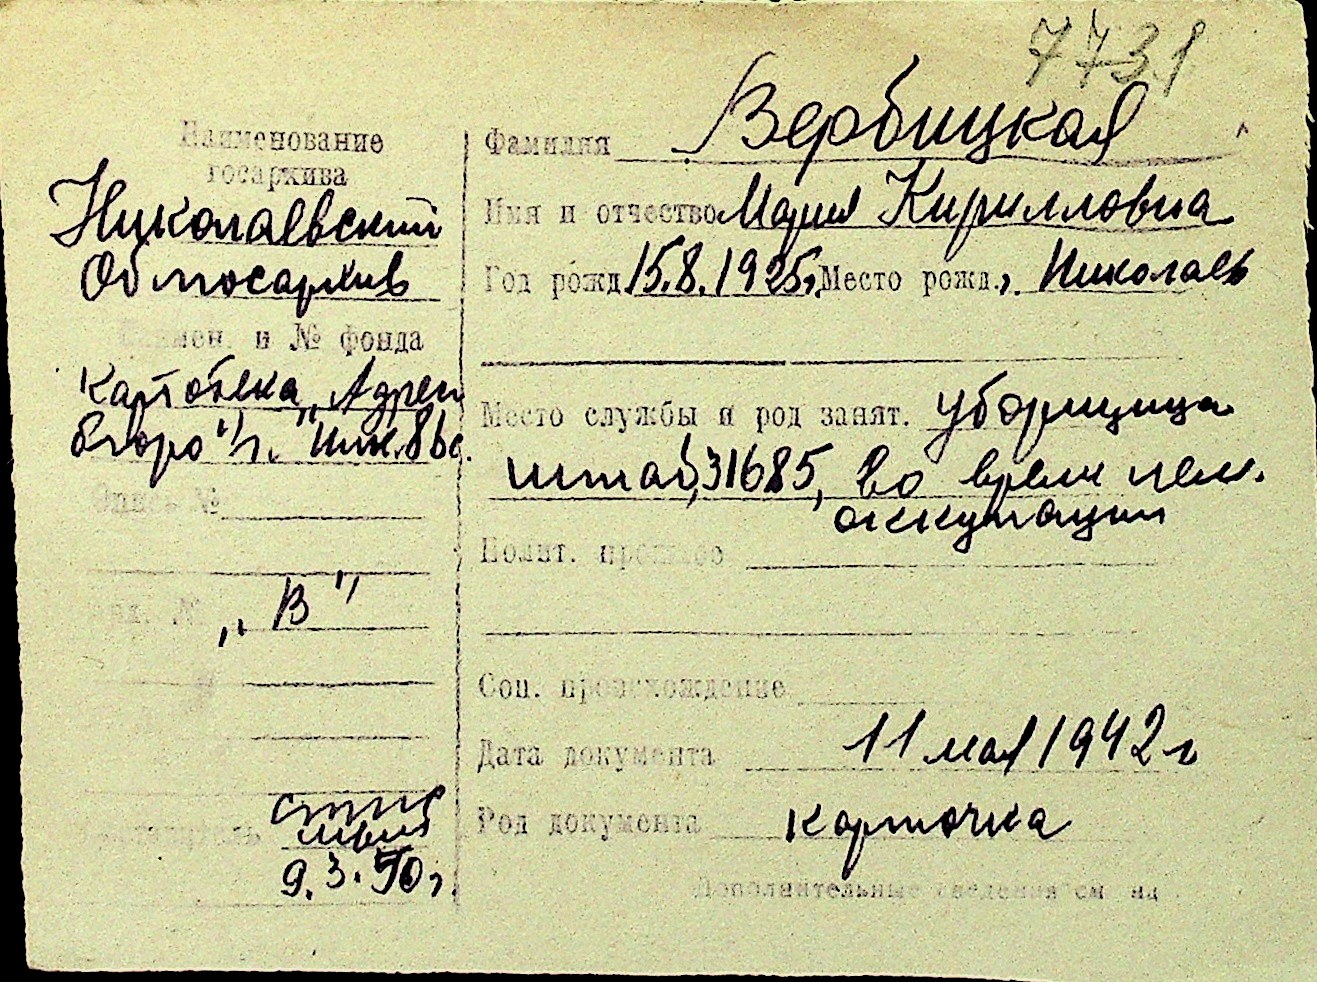 7731
Наименование
госархива
Николаевский
Облгосархив
Наимен. и № фонда
Картотека „Адресн
бюро" г.
Опись №
„В"
9.3.50 г.
Фамилия Вербицкая
Имя и отчество Мария Кирилловна
Год рожд. 15.8.1925 г. Место рожд. г. Николаев
Место службы и род занят. уборщица
штаб, 31685, во время нем.
оккупации
Полит. прошлое
Соц. происхождение
Дата документа 11 мая 1942 г
Род документа карточка
Дополнительные сведения см на